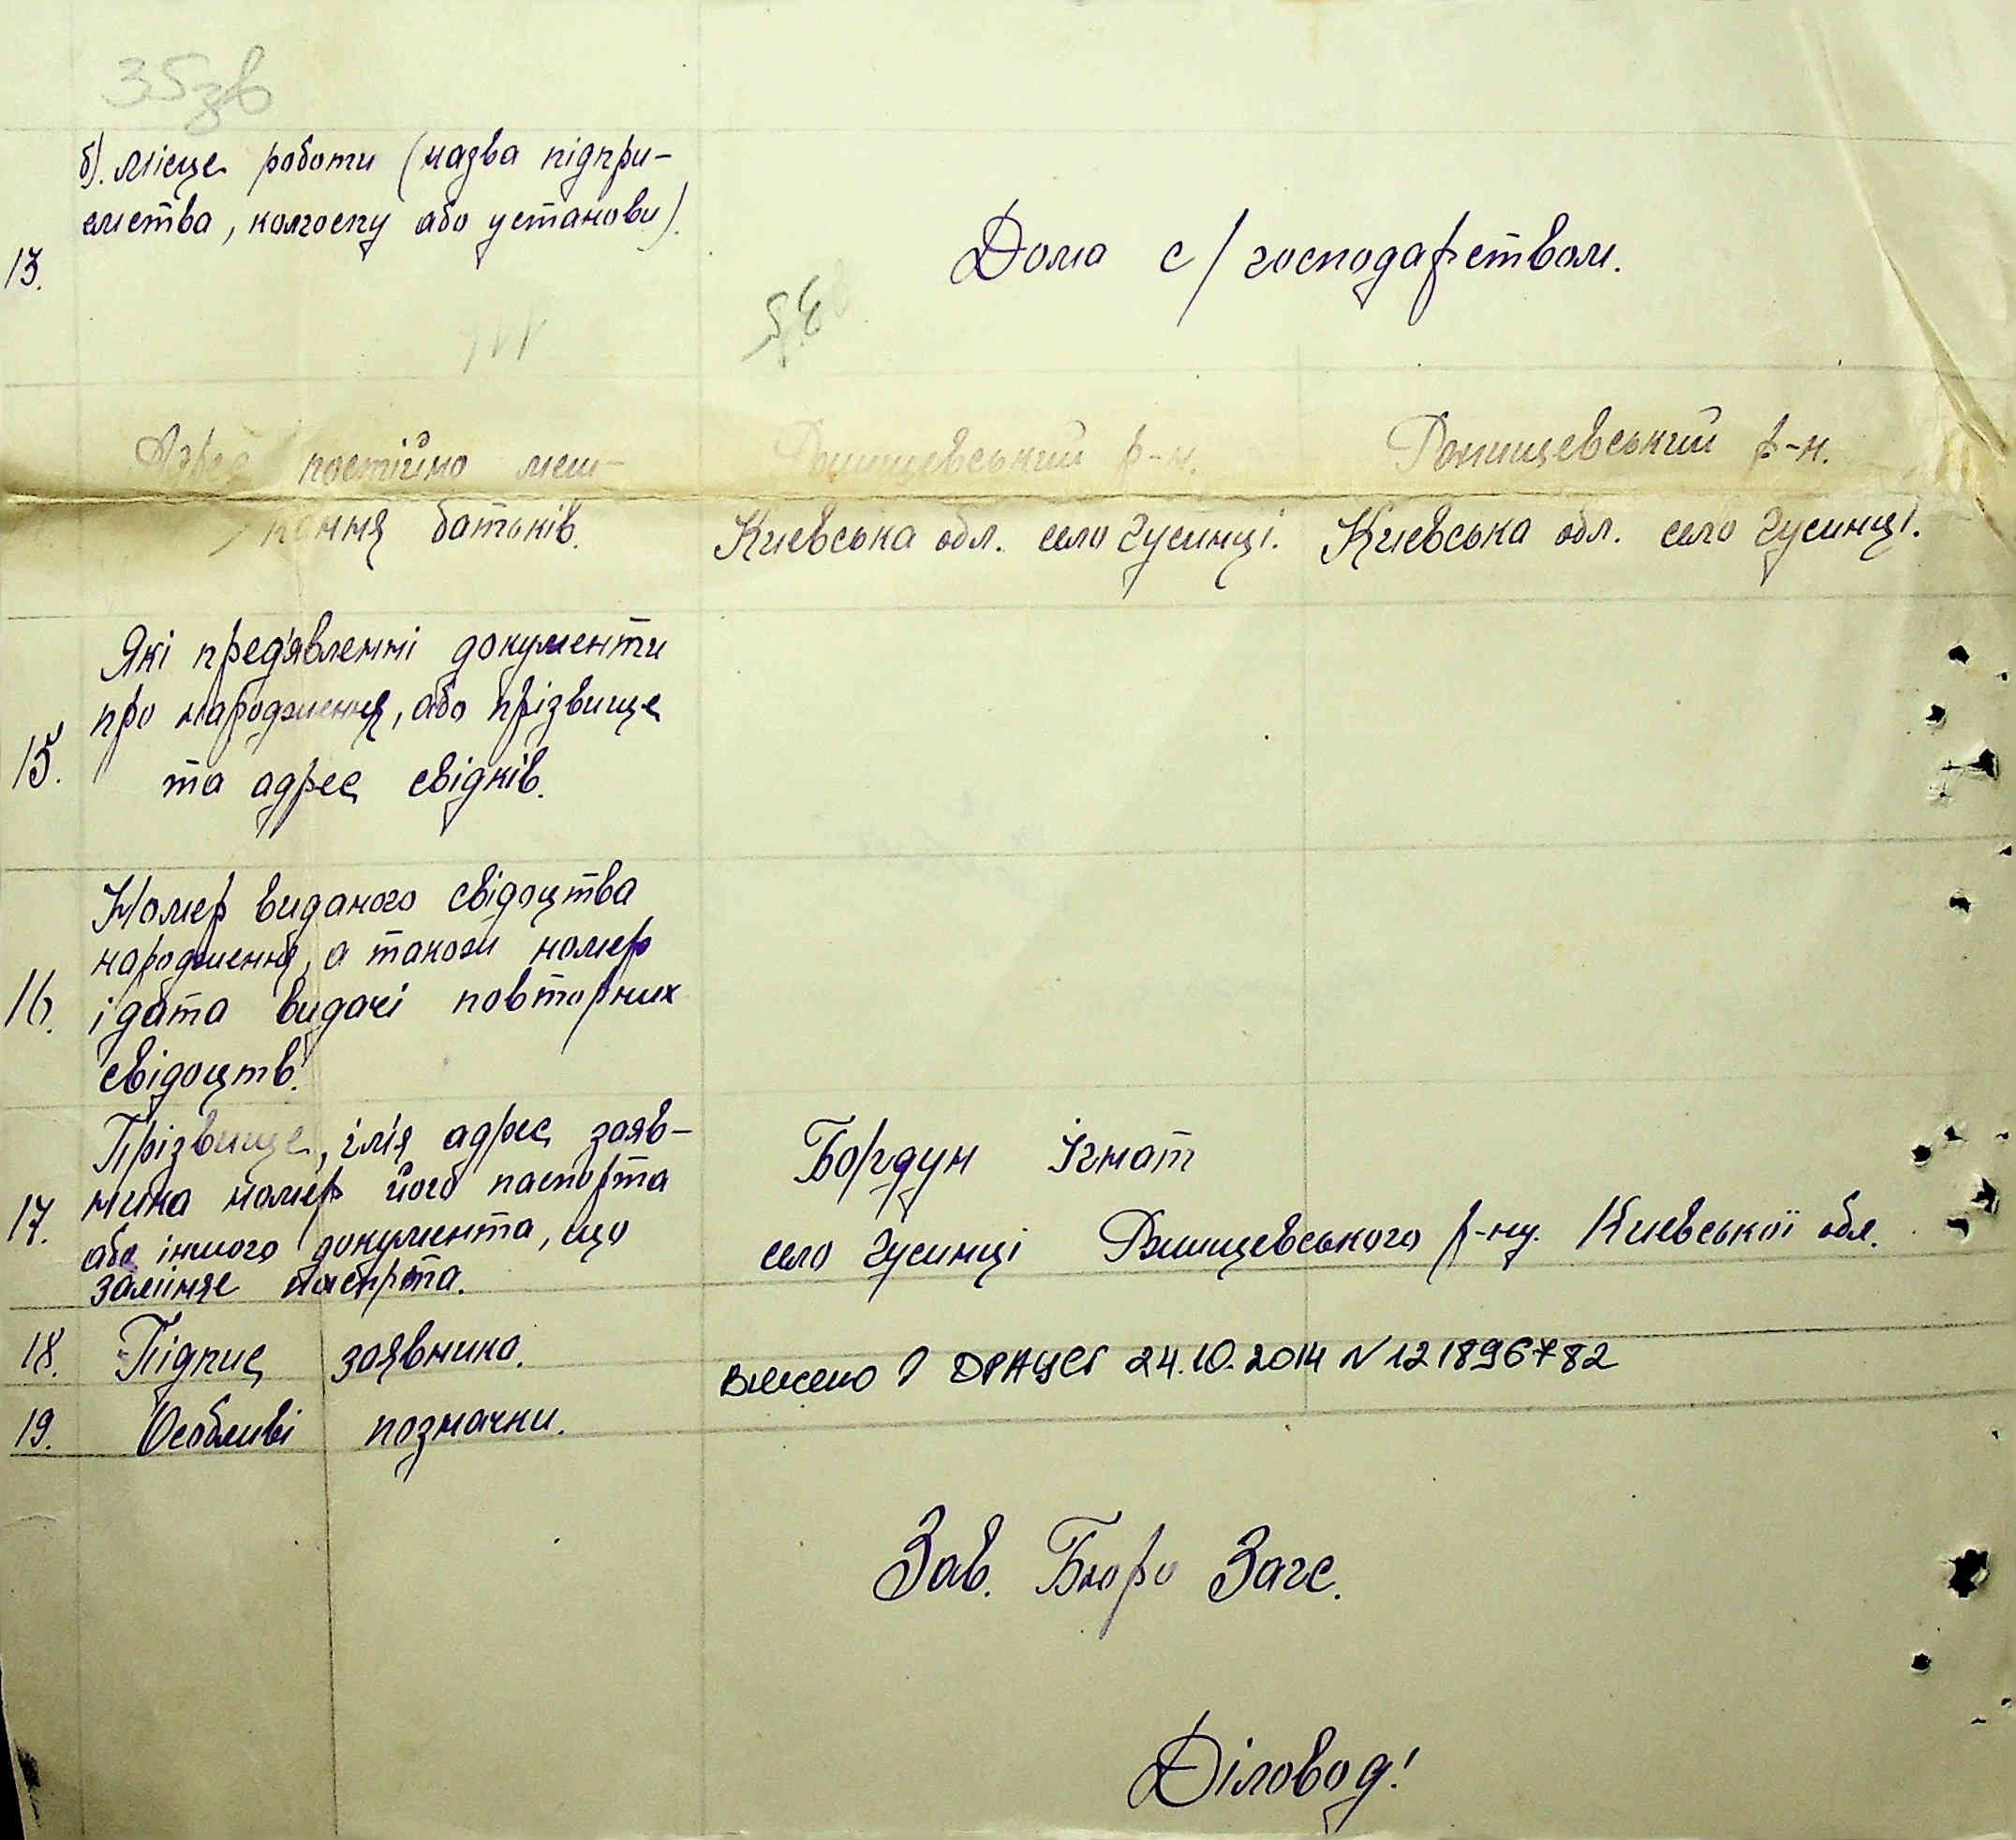 35зв
б). Місце роботи (назва підпри-
ємства, колгоспу або установи).
13.
Дома с/господарством.
Адрес постійно меш-
Ржищевський р-н.
Ржищевський р-н.
кання батьків.
Киевська обл. село Гусинці.
Киевська обл. село Гусинці.
Які пред'явленні документи
про народження, або прізвище
15.
та адрес свідків.
Номер виданого свідоцтва
народження, а також номер
16. і дата видачі повторних
свідоцтв.
Прізвище, ім'я адрес заяв-
Бордун Ігнат
ника номер його паспорта
17.
село Гусинці Ржищевського р-ну. Киевської обл.
або іншого документа, що
заміняє паспорта.
18. Підпис заявника.
Внесено в ДРАЦСГ 24.10.2014 N 121896782
19. Особливі позначки.
Зав. Бюро Загс.
Діловод!